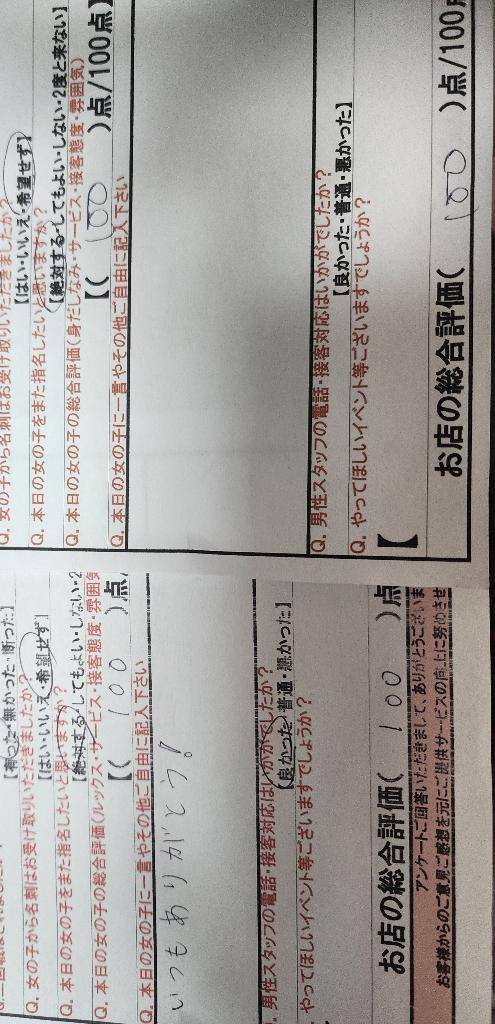 Q. 女の子から名刺はお受け取りいただきましたか?
【はい・いいえ・希望せず】
Q. 本日の女の子をまた指名したいと思いますか?
【絶対する・してもよい・しない・2度と来ない】
Q. 本日の女の子の総合評価(身だしなみ・サービス・接客態度・雰囲気)
【( 100 )点/100点】
Q. 本日の女の子に一言やその他ご自由に記入下さい
Q. 男性スタッフの電話・接客対応はいかがでしたか?
【良かった・普通・悪かった】
Q. やってほしいイベント等ございますでしょうか?
【
お店の総合評価( 100 )点/100点
【有った・無かった・断った】
Q. 女の子から名刺はお受け取りいただきましたか?
【はい・いいえ・希望せず】
Q. 本日の女の子をまた指名したいと思いますか?
【絶対する・してもよい・しない・2
Q. 本日の女の子の総合評価(ルックス・サービス・接客態度・雰囲気
【( 100 )点
Q. 本日の女の子に一言やその他ご自由に記入下さい
いつもありがとう!
Q. 男性スタッフの電話・接客対応はいかがでしたか?
【良かった・普通・悪かった】
やってほしいイベント等ございますでしょうか?
お店の総合評価( 100 )点
アンケートご回答いただきまして、ありがとうございま
お客様からのご意見ご感想を元にご提供サービスの向上に努めさせ